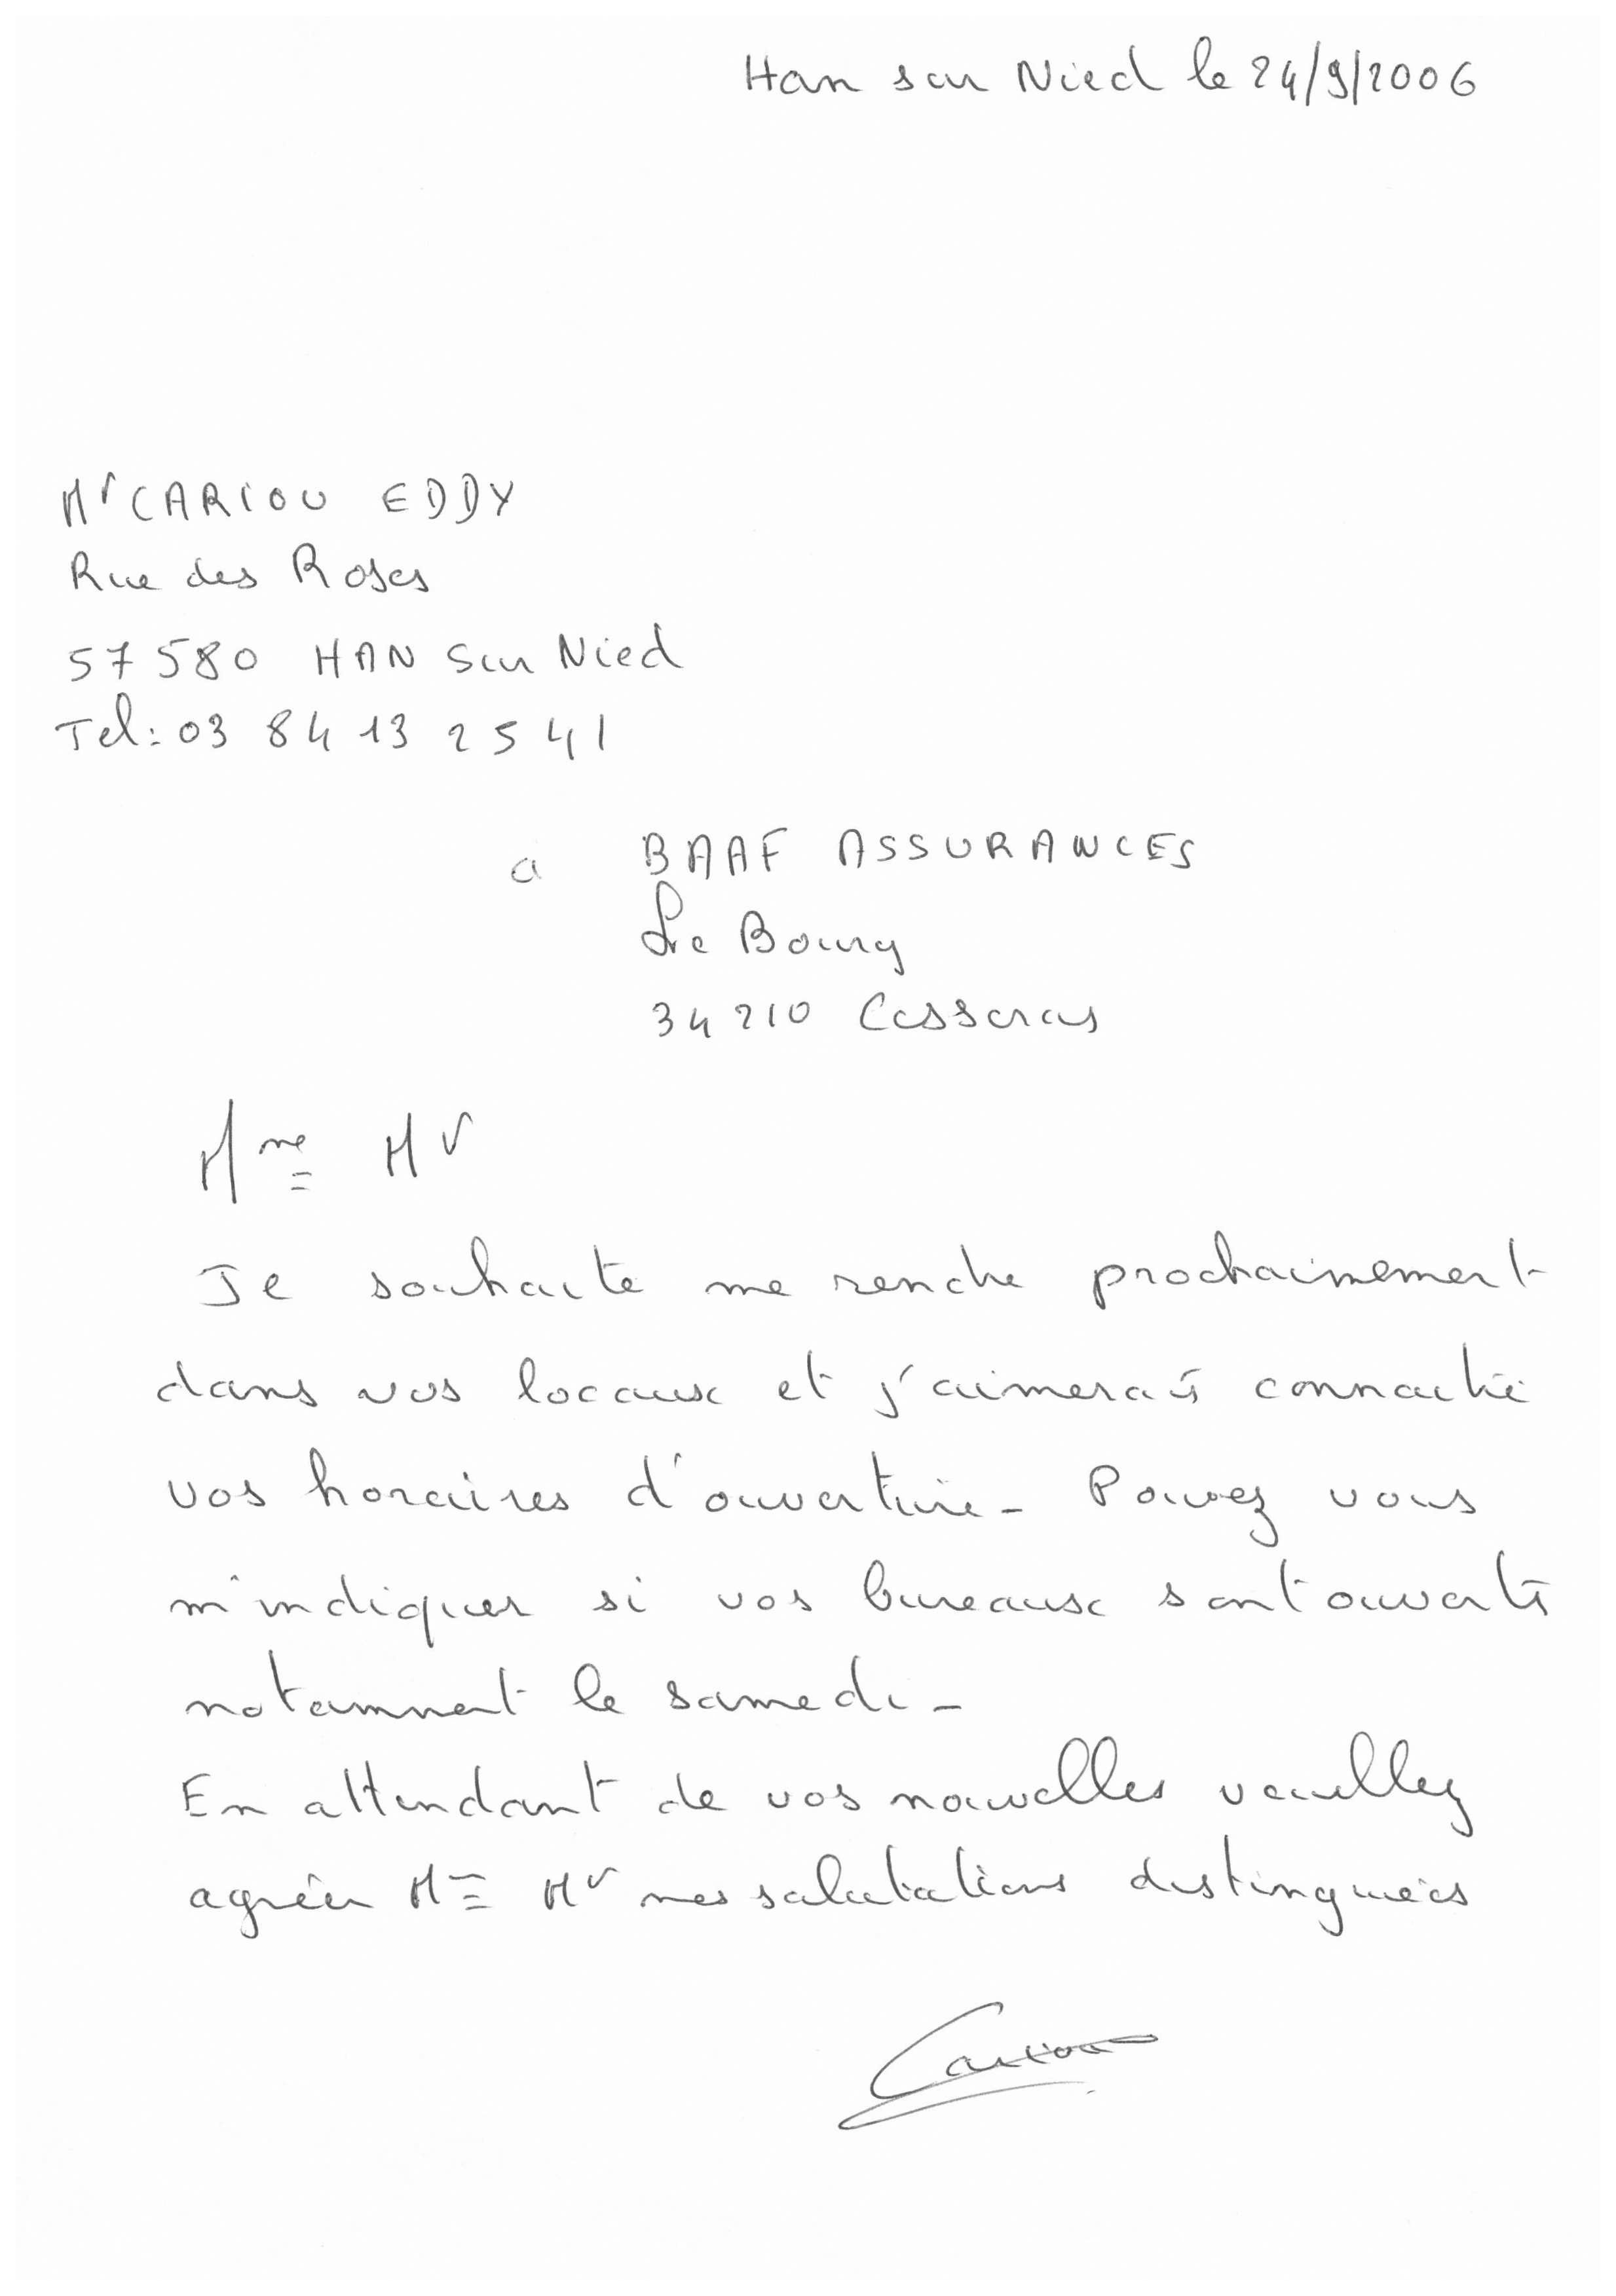 Han sur Nied le 24/9/2006
Mr CARIOU EDDY
Rue des Roses
57580 HAN sur Nied
Tel: 03 84 13 25 41
a BAAF ASSURANCES
Le Bourg
34210 Cesseras
Mme Mr
Je souhaite me rendre prochainement
dans vos locaux et j'aimerais connaitre
vos horaires d'ouverture - Pouvez vous
m'indiquer si vos bureaux sont ouverts
notamment le samedi -
En attendant de vos nouvelles veuillez
agréer Mme Mr mes salutations distinguées
Cariou